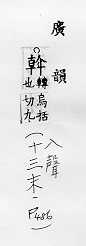 廣韻
○斡轉也烏括切九
(入聲
十三末·P486)